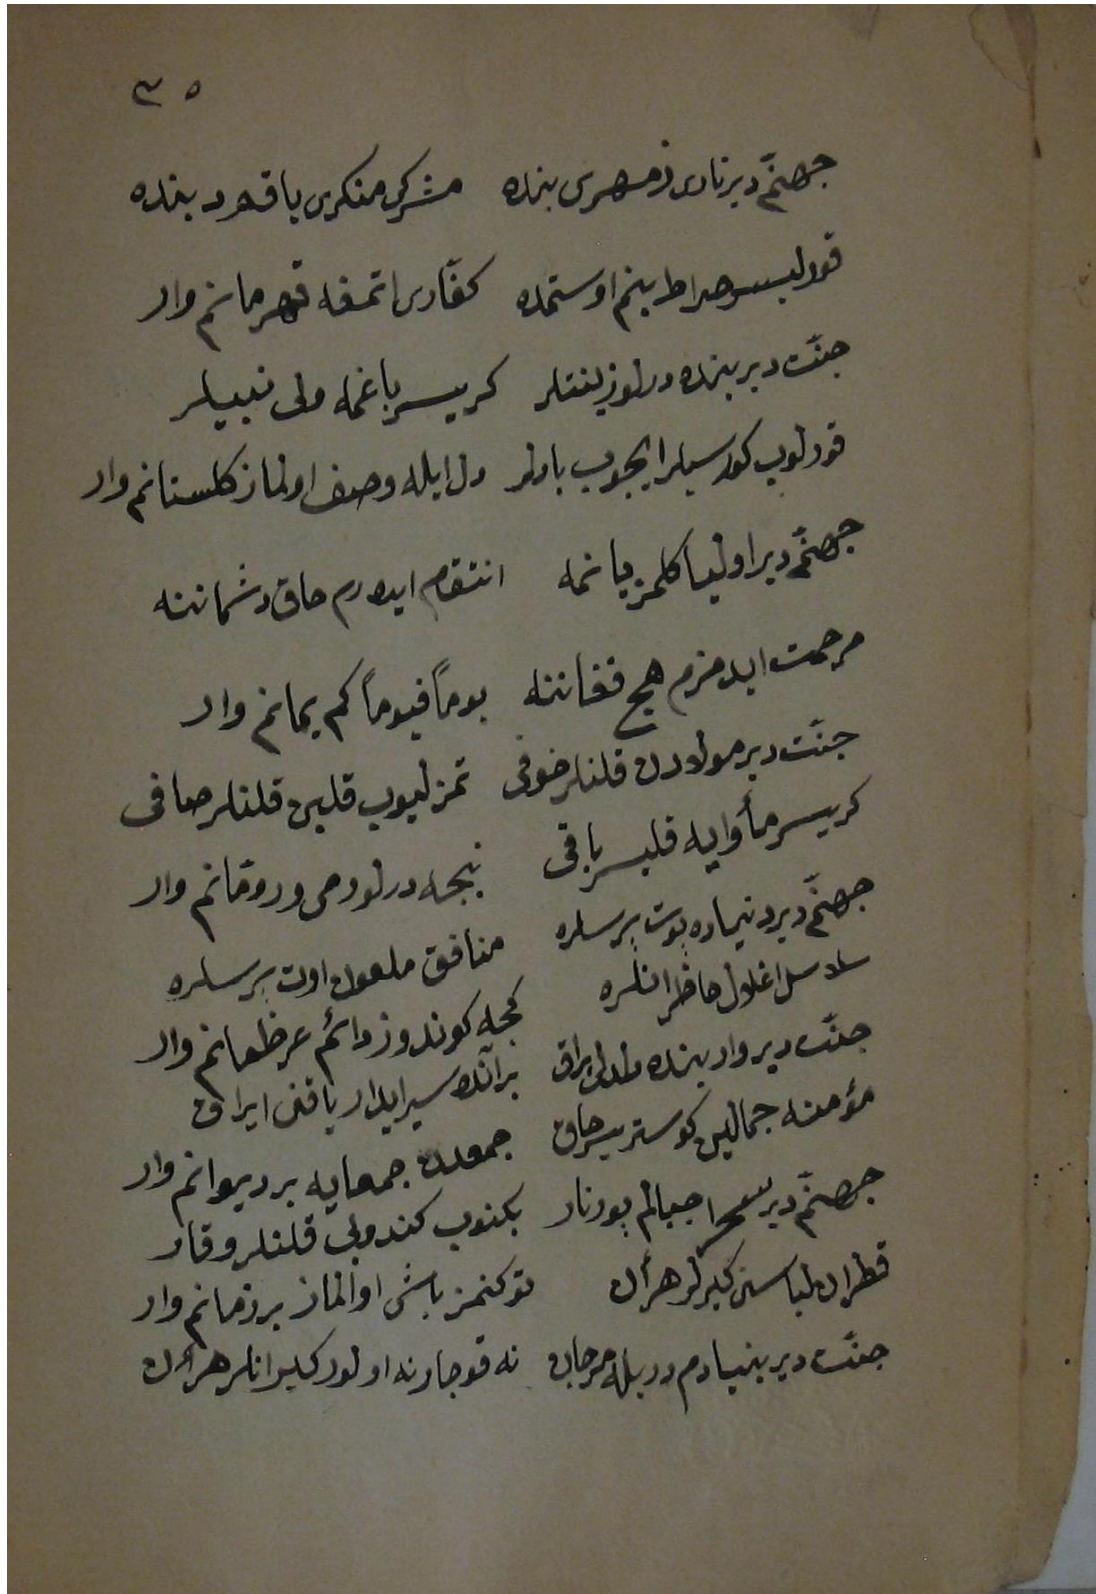 ٣٥
جهنّم دیر نارى زمهرى بنده مشركى منكرى ياقه‌ر بنده
قورليسر صراط بنم اوستمده كفّارى اتمغه قهرمانم وار
جنّت دير بنده درلو زينتلر كريسر باغمه ولى نبيلر
قورلوب كورسيلر ايچوب بادلر دل ايله وصف اولماز كلستانم وار
جهنّم دير اوليا كلمز يانمه انتقام ايدرم حاق دشماننه
مرحمت ايدمزم هيچ فغاننه يوماً فيوماً كم يمانم وار
جنّت دير مولادن قلنلر خوفى تمزليوب قلبى قلنلر صافى
كريسر مأوايه قليسر باقى نيجه درلو حورى روقانم وار
جهنّم دير دنياده بوت پرسلره منافق ملعون اوت پرسلره
سلاسل اغلال حاظر انلره كجه كوندوز دائم عرظمانم وار
جنّت دير وار بنده دلدل براق بر آنده سير ايدر ياقنى ايراق
مؤمنه جمالين كوستريسر حاق جمعدن جمعايه بر ديوانم وار
جهنّم دير جبالم بو نار بكنوب كندوىى قلنلر وقار
قطران لباسنى كيرلر هر أن توكنمز باشى اوالماز بر زمانم وار
جنّت دير بنيادم در يله مرجان نه قوجار نه اولور كيوانلر هر أن